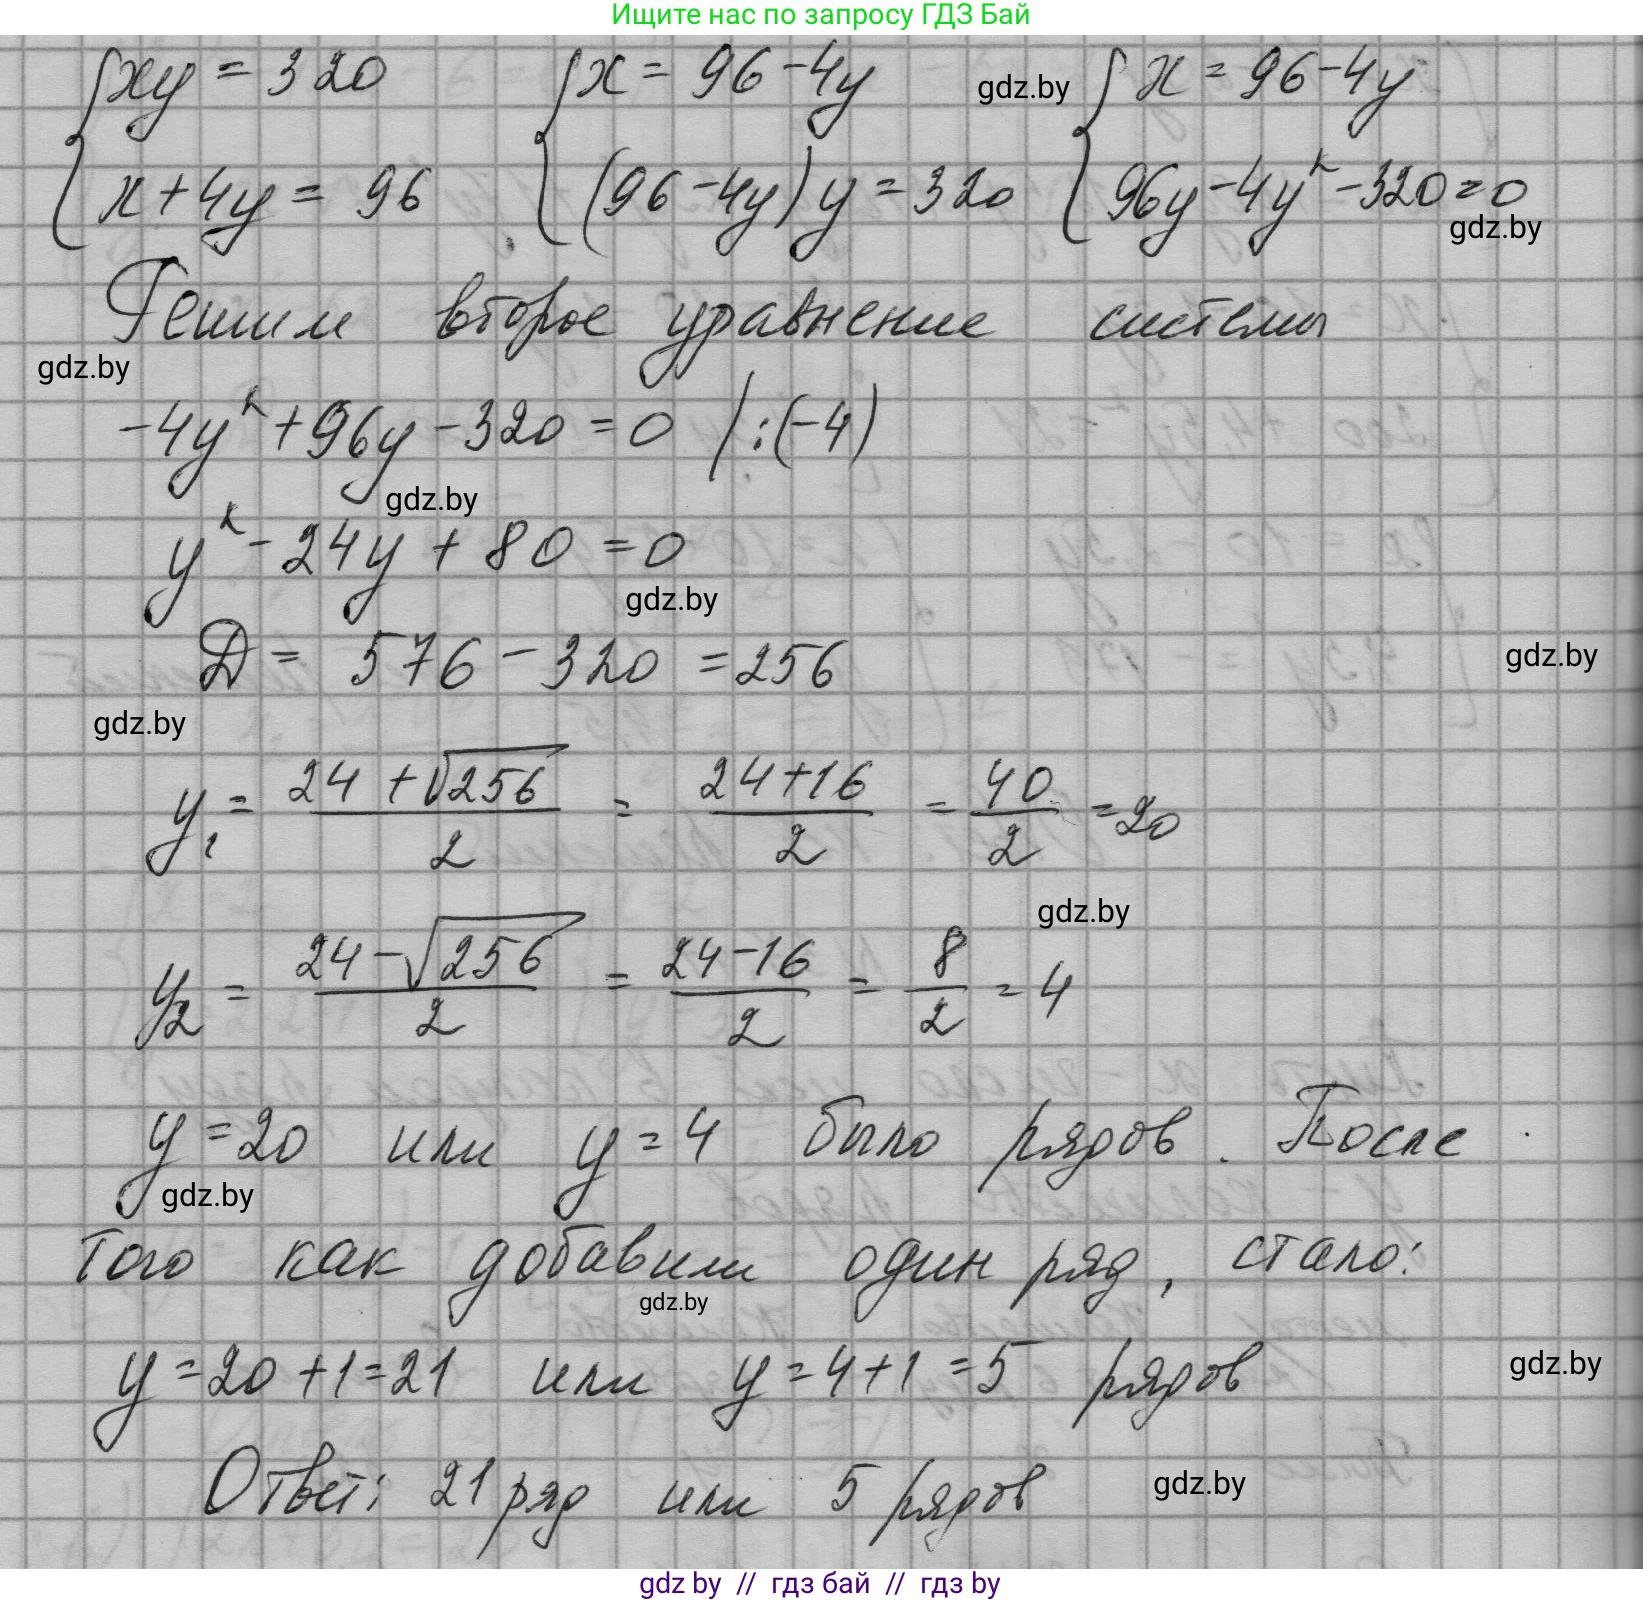 Ищите нас по запросу ГДЗ Бай
{xy = 320 {x = 96 - 4y gdz.by {x = 96 - 4y
x + 4y = 96 (96 - 4y)y = 320 96y - 4y² - 320 = 0
gdz.by
Решим второе уравнение системы
gdz.by
-4y² + 96y - 320 = 0 | :(-4)
gdz.by
y² - 24y + 80 = 0
gdz.by
D = 576 - 320 = 256
gdz.by
gdz.by
y₁ = (24 + √256)/2 = (24+16)/2 = 40/2 = 20
gdz.by
y₂ = (24 - √256)/2 = (24-16)/2 = 8/2 = 4
y = 20 или y = 4 было рядов. После
gdz.by
того как добавили один ряд, стало:
gdz.by
y = 20 + 1 = 21 или y = 4 + 1 = 5 рядов
gdz.by
Ответ: 21 ряд или 5 рядов
gdz.by
gdz by // гдз бай // гдз by